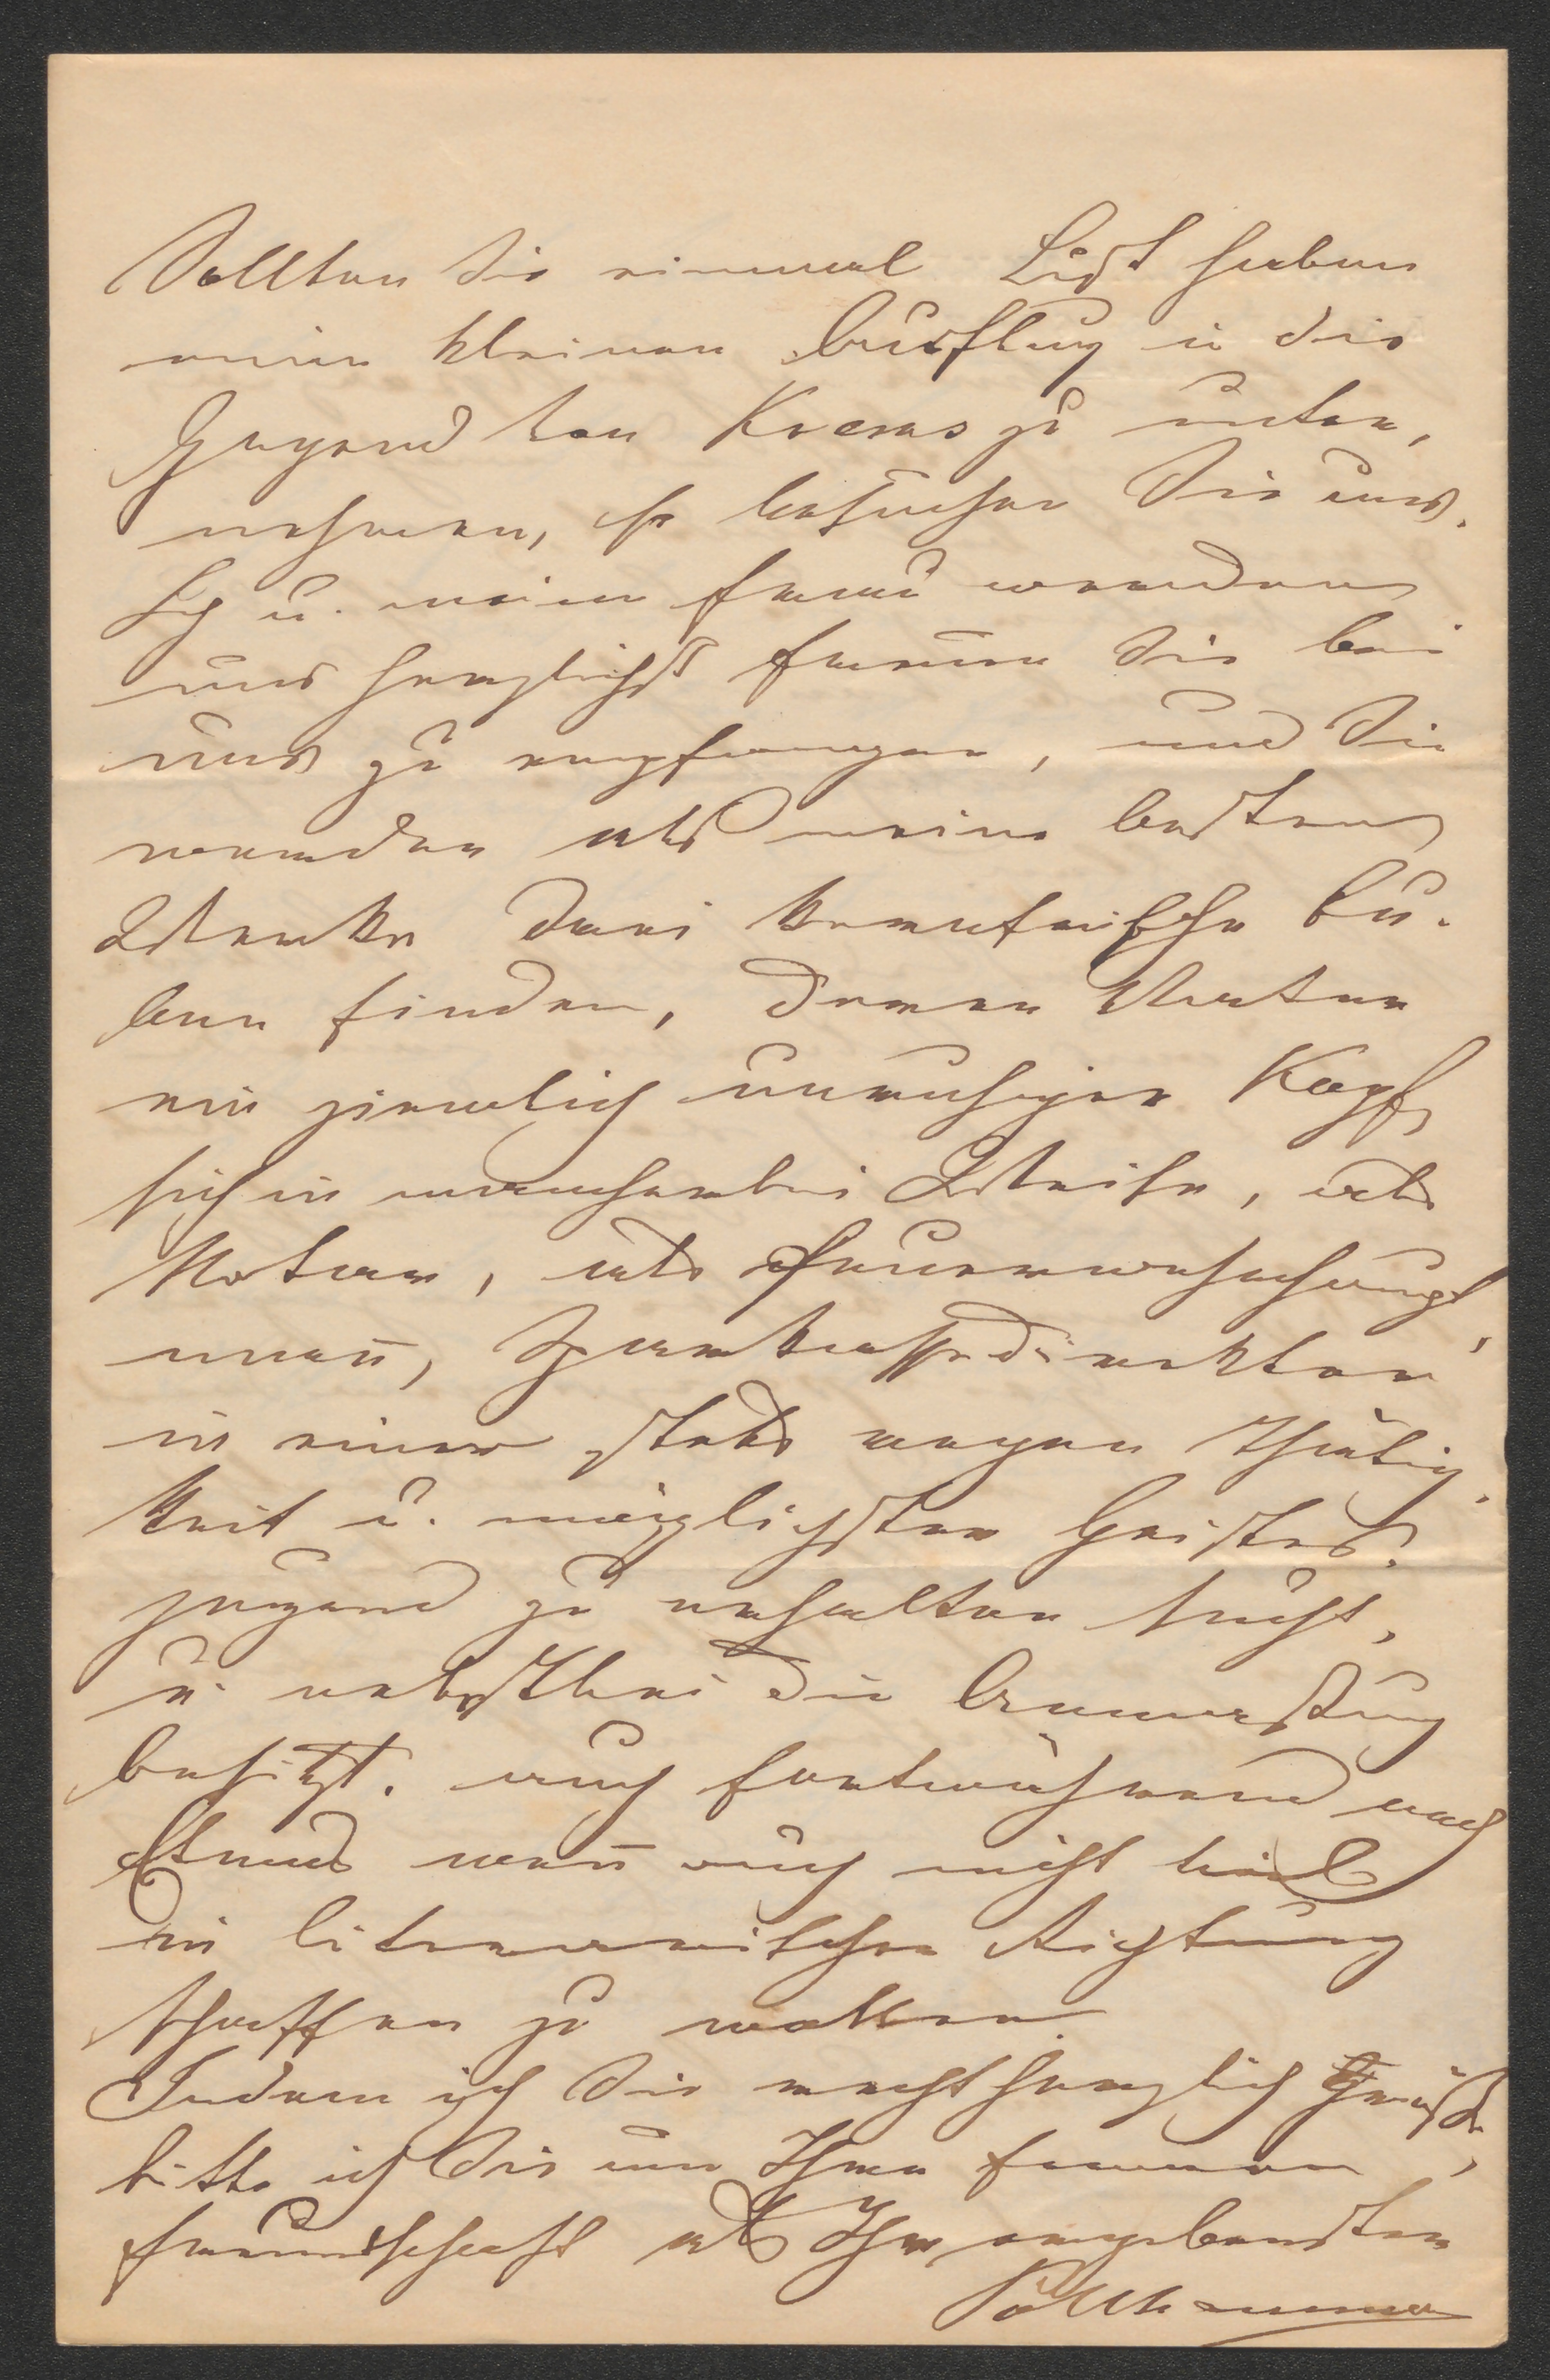 Sollten Sie einmal Lust haben
einen kleinen Ausflug in die
Gegend von Krems zu unter,
nehmen, so besuchen Sie uns.
Ich u. meine Frau werden
uns herzlichst freuen Sie bei
uns zu empfangen, und Sie
werden als meine besten
Werke drei kernfrische Bu-
ben finden, deren Vater
ein ziemlich unruhiger Kopf
sich in mancherlei Weise, als
Notar, als Feuerwehrhaupt,
mañ, Sparkassedirektor
in einer stets regen Thätig,
keit u. möglichster Geistes,
jugend zu erhalten sucht,
u. nebstbei die Anmaßung
besitzt, auch fortwährend noch
Etwas weñ auch nicht viel
in literarischer Richtung
schaffen zu wollen.
Indem ich Sie recht herzlich grüße,
bitte ich Sie um Ihre fernere
Freundschaft als Ihr ergebenster
Pöllhammer